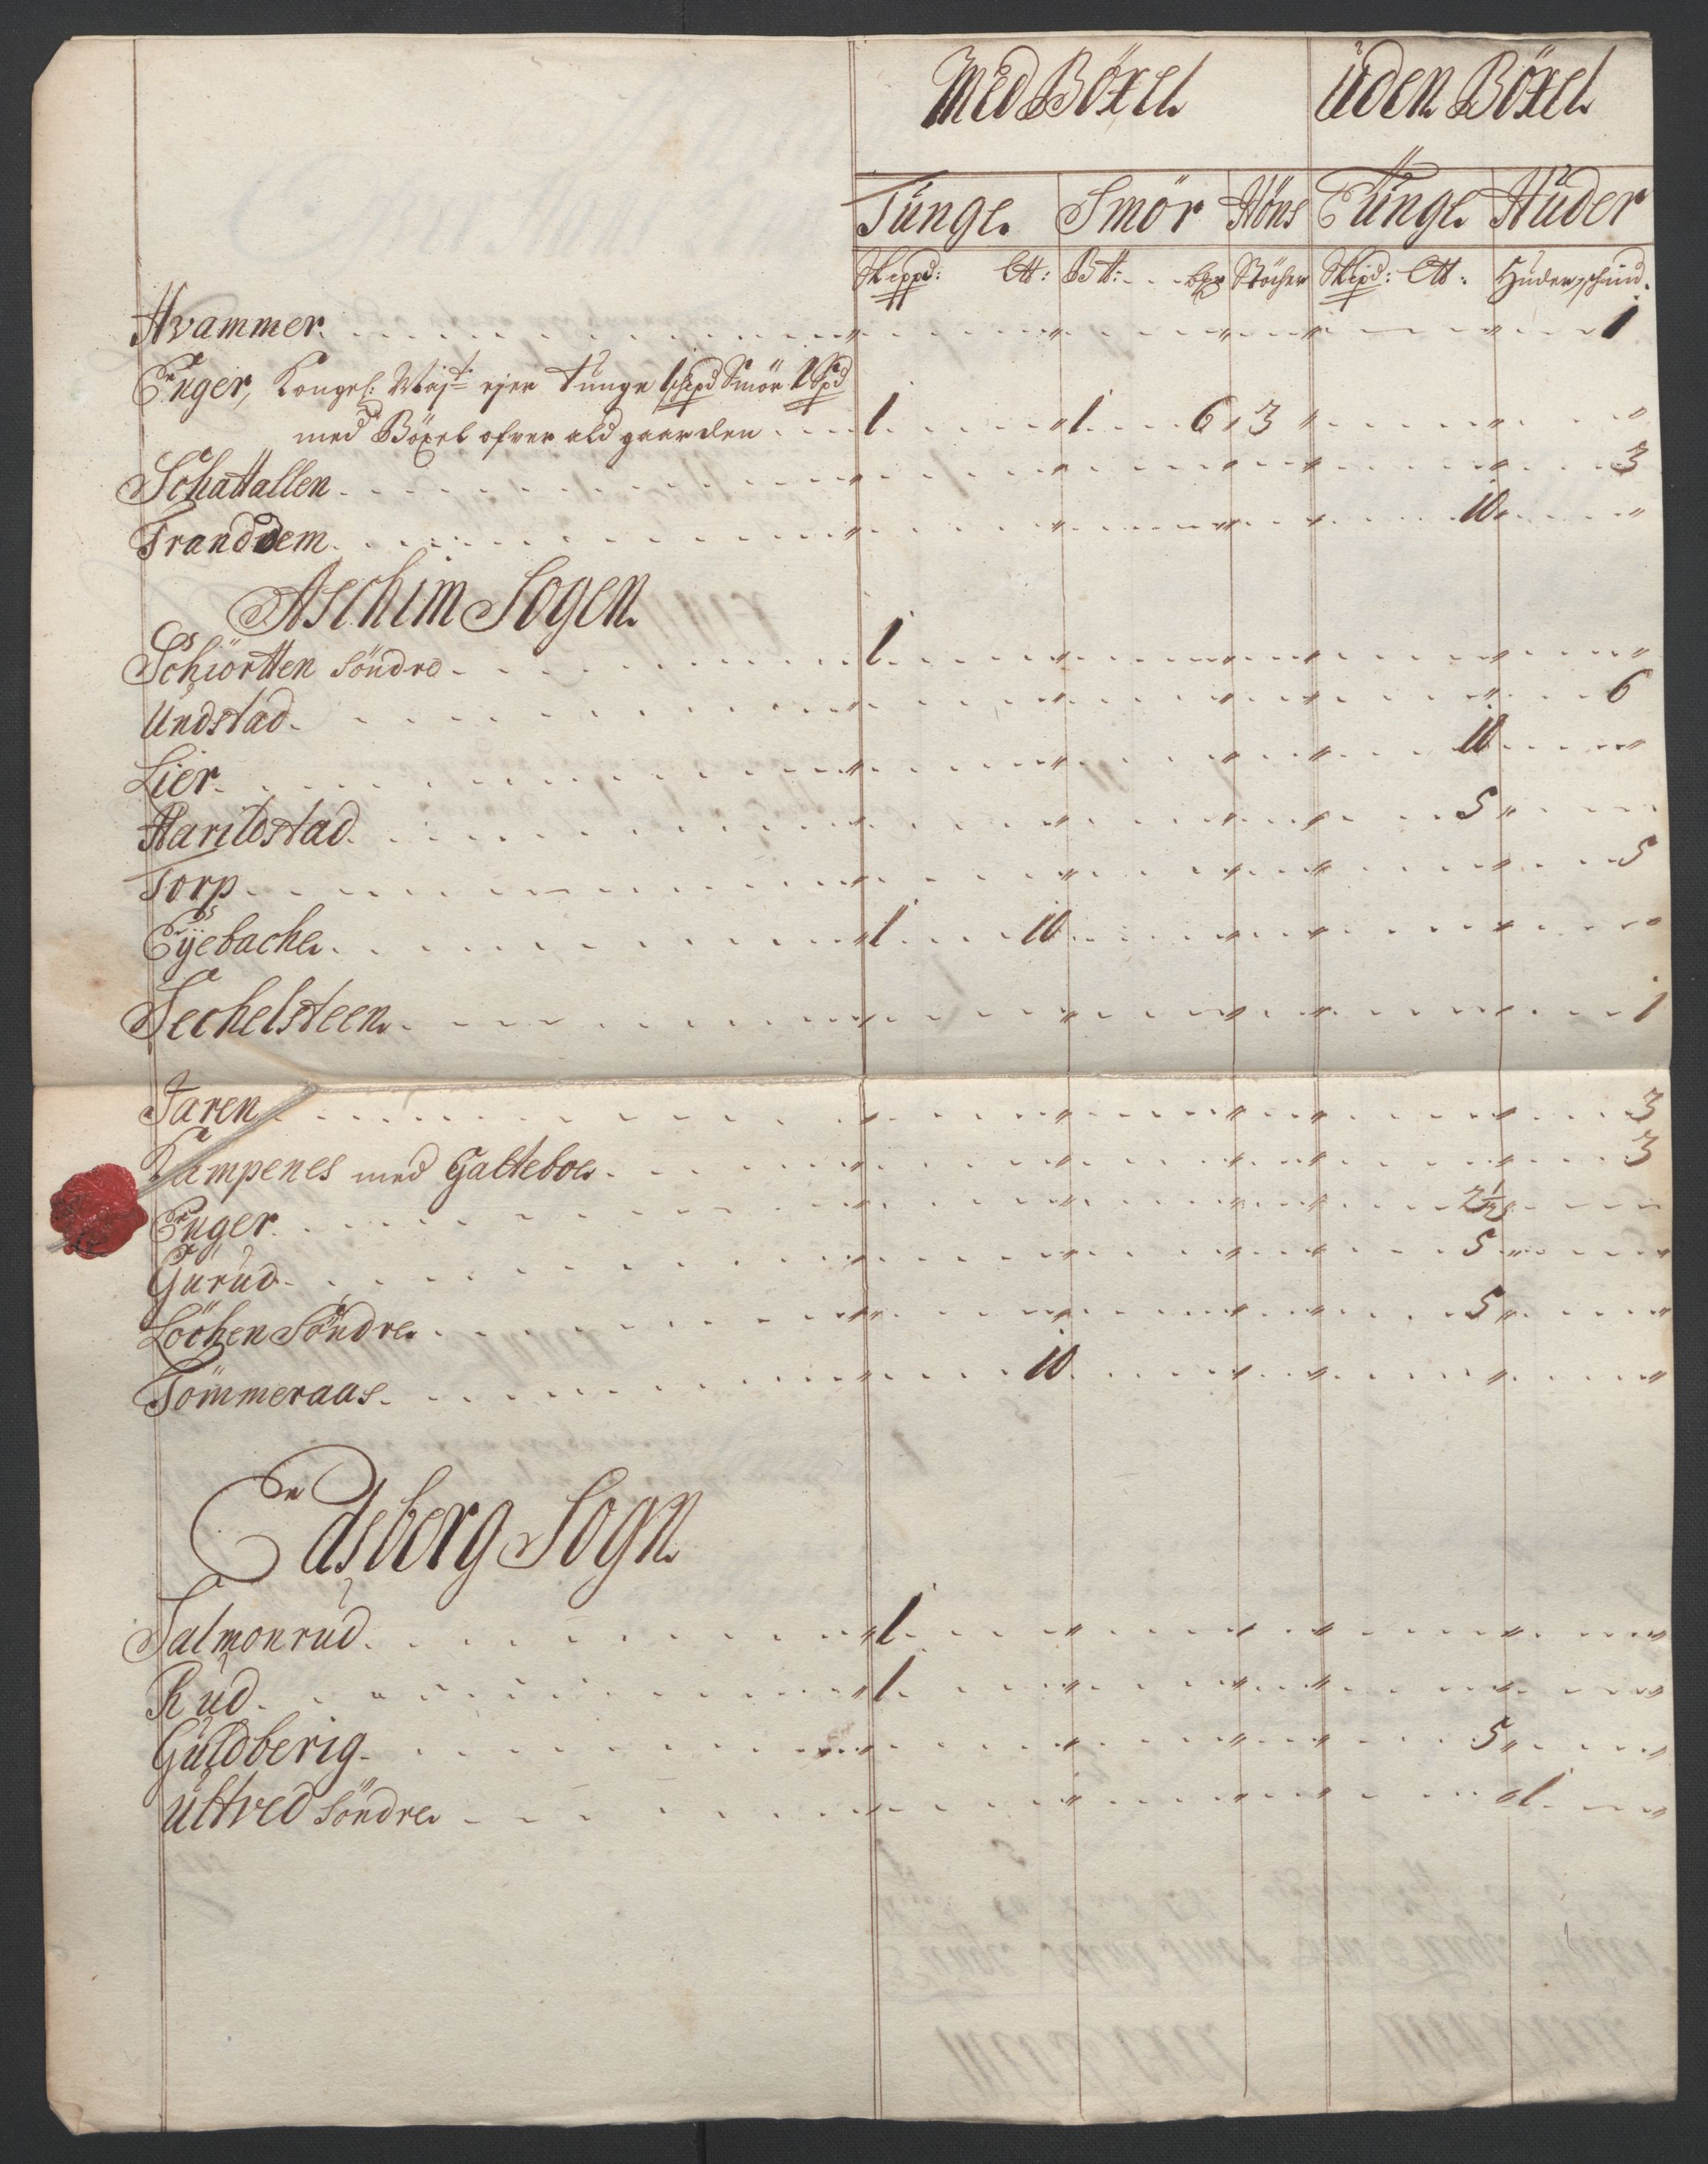 Med Böxel. Uden Böxel.
Tunge. Smör Höns Tunge. Huder
Skippd: L℔: B℔: Stöcher Skipd: L℔: Huder, schind.
Hvammer. 1
Enger, Kongel: Maj:t ejer tunge 1 schpd Smör 1 Bpd
med Böxel ofver ald gaarden 1 1 6 3
Schattallen 3
Tranddem 10
Aschim Sogen.
Schiortten Söndre 1
Undstad 6
Lier 10
Harildstad 5
Torp 5
Eÿebache 1 10
Sechelsteen 1
Jaren 3
Kampenes med Galteboe 3
Enger 2½
Garud 5
Löchen Söndre 5
Tömmeraas 10
Edsberg Sogn
Salmonrud 1
Rud 1
Guldberig 5
Ultved Söndre 1